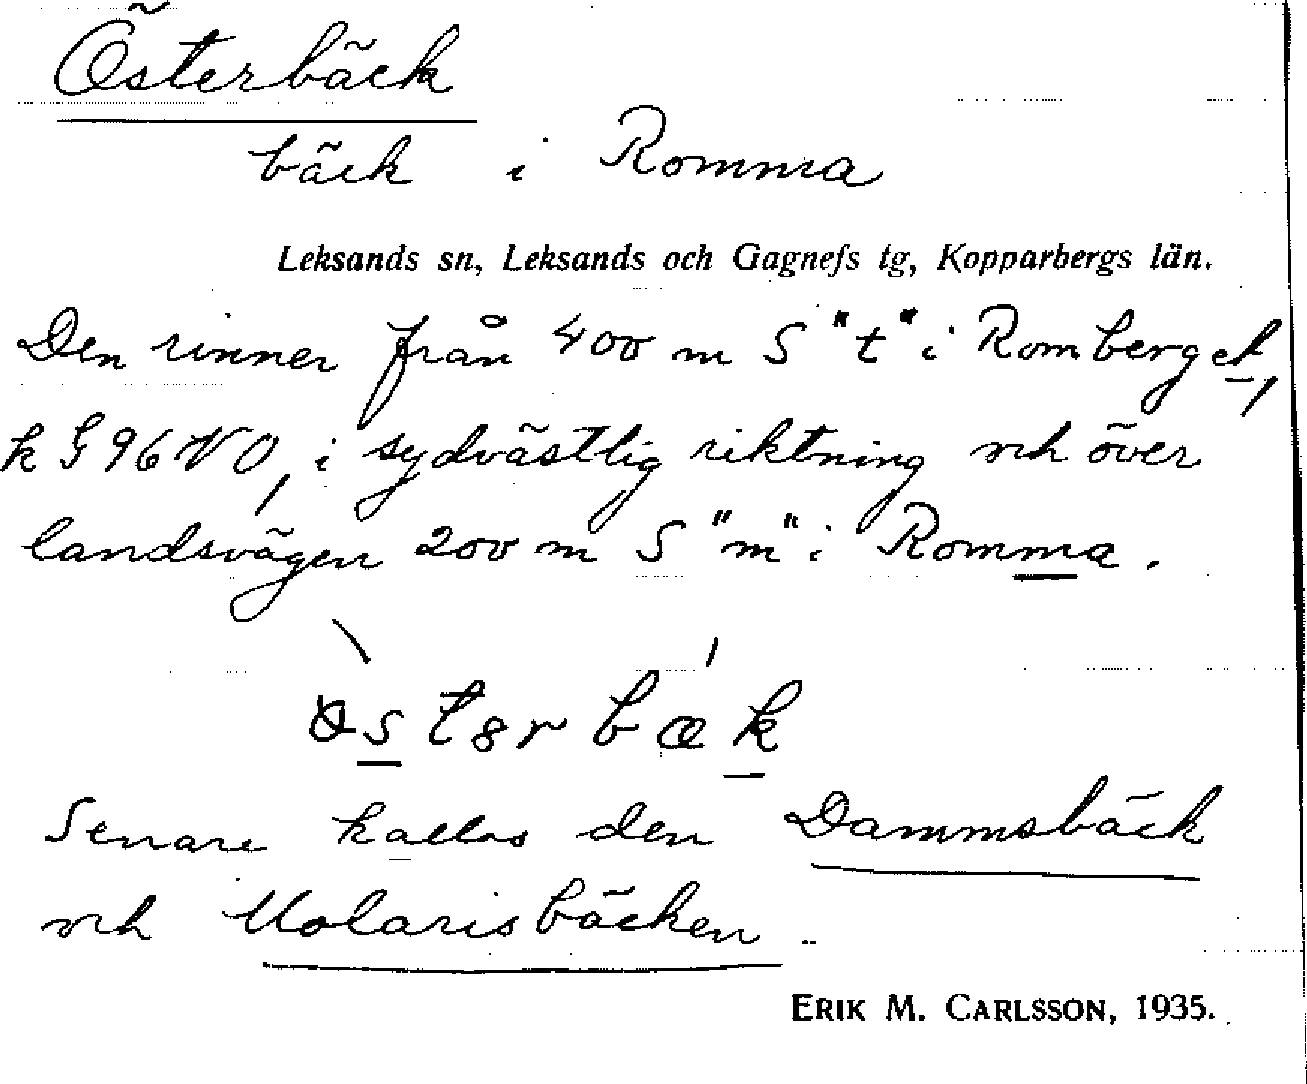 Österbäck
bäck i Romma
Leksands sn, Leksands och Gagnefs tg, Kopparbergs län.
Den rinner från 400 m S "t" i Romberget,
k G 96 NO, i sydvästlig riktning och över
landsvägen 200 m S "m" i Romma.
Senare kallas den Dammsbäck
och Molarisbäcken.
ERIK M. CARLSSON, 1935.